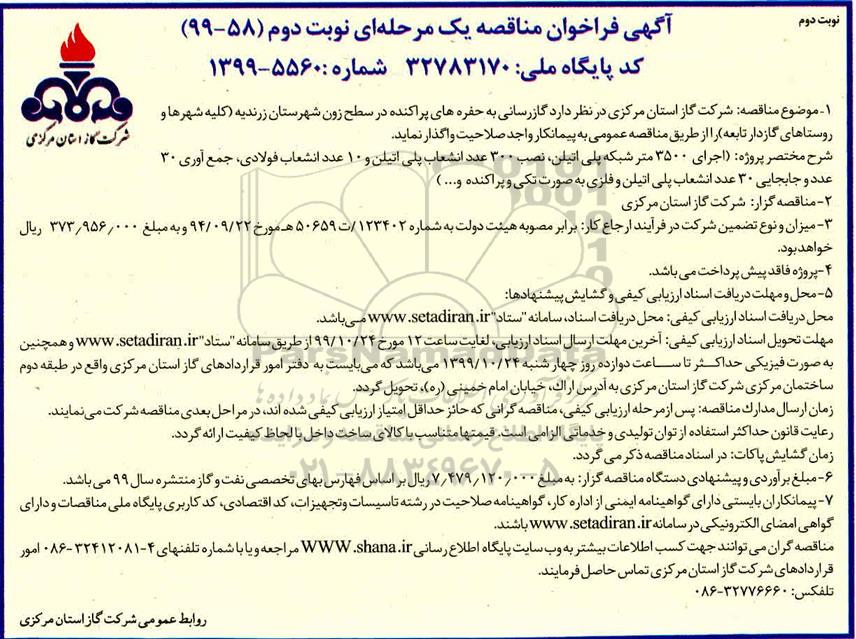 نوبت دوم
آگهی فراخوان مناقصه یک مرحله‌ای نوبت دوم (۵۸-۹۹)
کد پایگاه ملی: ۳۲۷۸۳۱۷۰ شماره: ۵۵۶۰-۱۳۹۹
شرکت گاز استان مرکزی
۱-موضوع مناقصه: شرکت گاز استان مرکزی در نظر دارد گازرسانی به حفره های پراکنده در سطح زون شهرستان زرندیه (کلیه شهرها و
روستاهای گازدار تابعه) را از طریق مناقصه عمومی به پیمانکار واجد صلاحیت واگذار نماید.
شرح مختصر پروژه: (اجرای ۳۵۰۰ متر شبکه پلی اتیلن، نصب ۳۰۰ عدد انشعاب پلی اتیلن و ۱۰ عدد انشعاب فولادی، جمع آوری ۳۰
عدد و جابجایی ۳۰ عدد انشعاب پلی اتیلن و فلزی به صورت تکی و پراکنده و... )
۲-مناقصه گزار: شرکت گاز استان مرکزی
۳-میزان و نوع تضمین شرکت در فرآیند ارجاع کار: برابر مصوبه هیئت دولت به شماره ۱۲۳۴۰۲/ت ۵۰۶۵۹ هـ مورخ ۹۴/۰۹/۲۲ و به مبلغ ۳۷۳٫۹۵۶٫۰۰۰ ریال
خواهد بود.
۴-پروژه فاقد پیش پرداخت می باشد.
۵-محل و مهلت دریافت اسناد ارزیابی کیفی و گشایش پیشنهادها:
محل دریافت اسناد ارزیابی کیفی: محل دریافت اسناد، سامانه "ستاد" www.setadiran.ir مـی‌باشد.
مهلت تحویل اسناد ارزیابی کیفی: آخرین مهلت ارسال اسناد ارزیابی، لغایت ساعت ۱۲ مورخ ۹۹/۱۰/۲۴ از طریق سامانه "ستاد" www.setadiran.ir و همچنین
به صورت فیزیکی حداکثـر تا ساعت دوازده روز چهار شنبه ۱۳۹۹/۱۰/۲۴ می‌باشد که می‌بایست به دفتر امور قراردادهای گاز استان مرکزی واقع در طبقه دوم
ساختمان مرکزی شرکت گاز استان مرکزی به آدرس اراك، خیابان امام خمینی (ره)، تحویل گردد.
زمان ارسال مدارك مناقصه: پس از مرحله ارزیابی کیفی، مناقصه گرانی که حائز حداقل امتیاز ارزیابی کیفی شده اند، در مراحل بعدی مناقصه شرکت می‌نمایند.
رعایت قانون حداکثر استفاده از توان تولیدی و خدماتی الزامی است. قیمتها متناسب با کالای ساخت داخل با لحاظ کیفیت ارائه گردد.
زمان گشایش پاکات: در اسناد مناقصه ذکر می گردد.
۶-مبلغ برآوردی و پیشنهادی دستگاه مناقصه گزار: به مبلغ ۷٫۴۷۹٫۱۲۰٫۰۰۰ ریال بر اساس فهارس بهای تخصصی نفت و گاز منتشره سال ۹۹ می باشد.
۷-پیمانکاران بایستی دارای گواهینامه ایمنی از اداره کار، گواهینامه صلاحیت در رشته تاسیسات و تجهیزات، کد اقتصادی، کد کاربری پایگاه ملی مناقصات و دارای
گواهی امضای الکترونیکی در سامانه www.setadiran.ir باشند.
مناقصه گران می توانند جهت کسب اطلاعات بیشتر به وب سایت پایگاه اطلاع رسانی WWW.shana.ir مراجعه و یا با شماره تلفنهای ۴-۳۲۴۱۲۰۸۱-۰۸۶ امور
قراردادهای شرکت گاز استان مرکزی تماس حاصل فرمایند.
تلفکس: ۳۲۷۷۶۶۶۰-۰۸۶
روابط عمومی شرکت گاز استان مرکزی
ParsNamadData
پایگاه اطلاع رسانی مناقصه و مزایده
۰۲۱-۸۸۳۴۹۶۷۰-۵